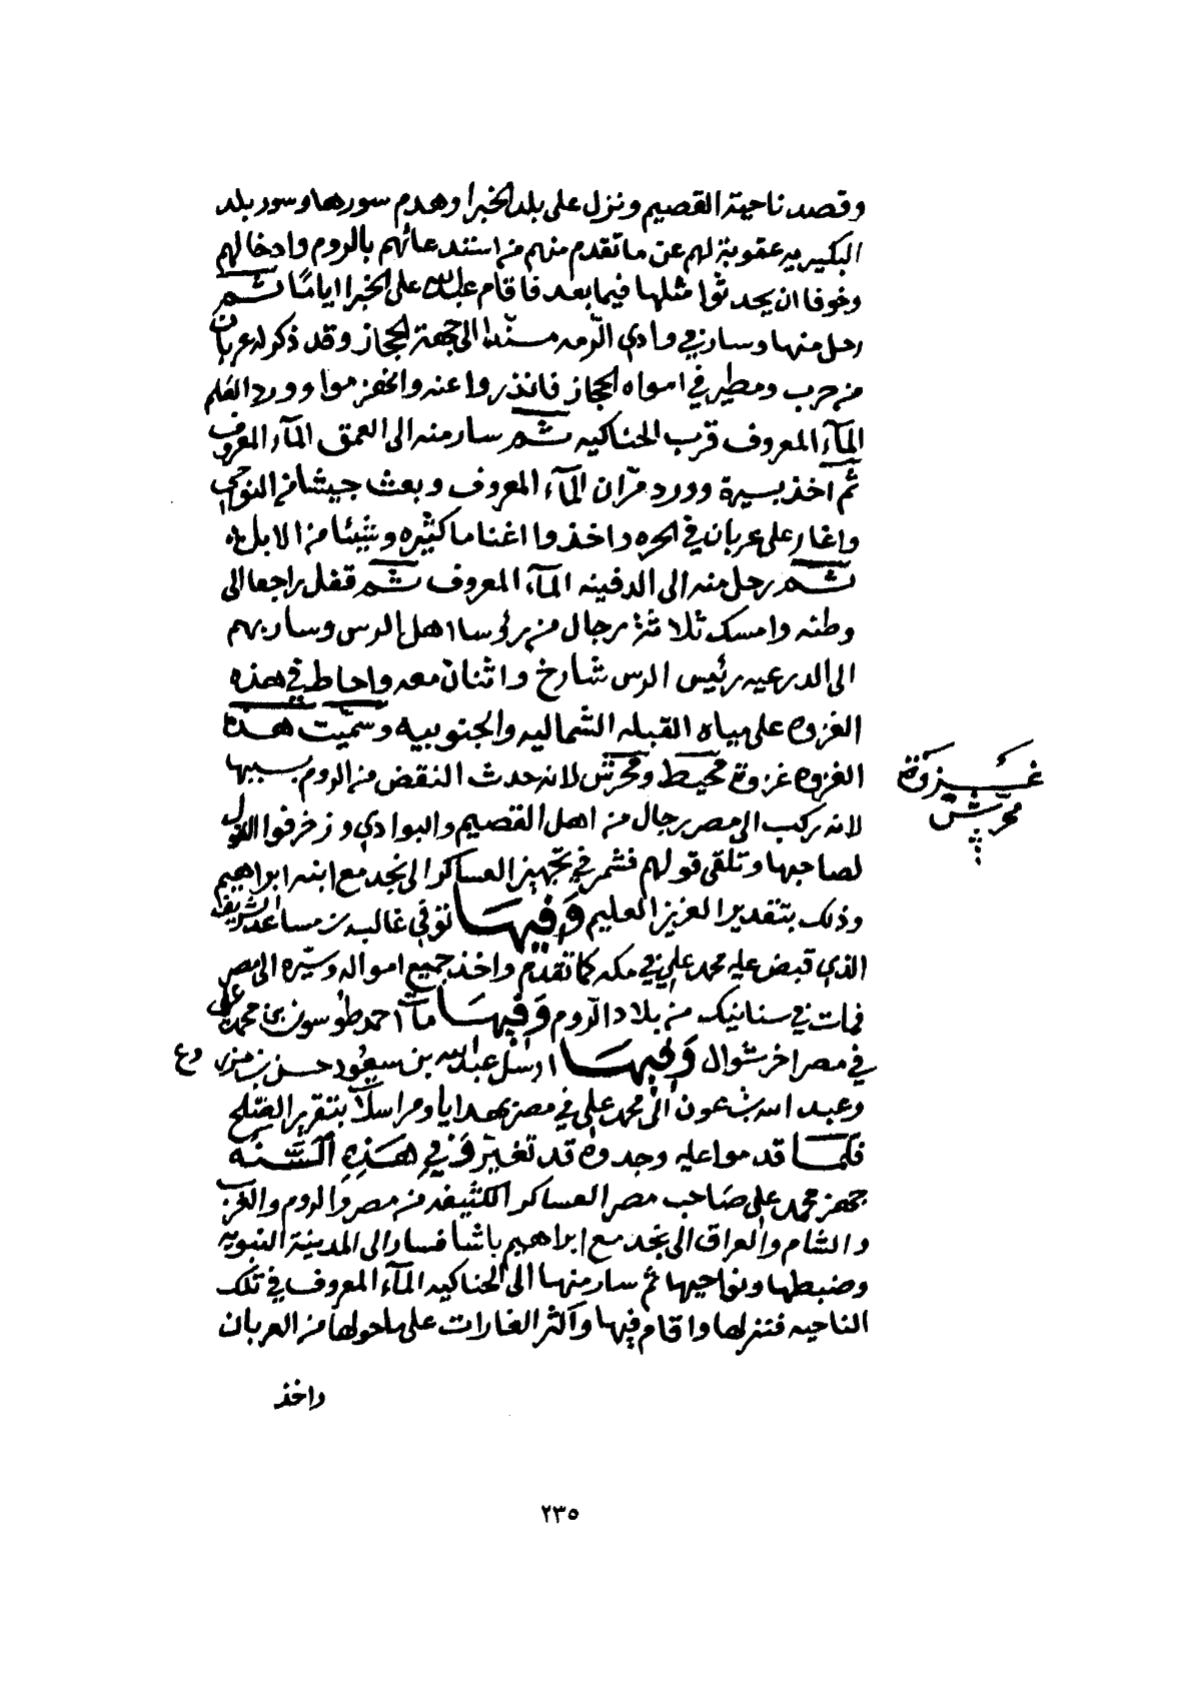 وقصد ناحية القصيم ونزل على بلد الخبرا وهدم سورها وسور بلد
البكيريه عقوبة لهم عن ما تقدم منهم من استدعائهم بالروم وادخالهم
وخوفا ان يحدثوا مثلها فيما بعد فاقام عبدالله على الخبرا اياما ثم
رحل منها وسار في وادي الرمه مسندا الى جهة الحجاز وقد ذكر له عربان
من حرب ومطير في امواه الحجاز فانذروا عنه وانهزموا وورد العلم
المآء المعروف قرب الحناكيه ثم سار منه الى العمق المآء المعروف
ثم اخذ بسيرة وورد مران المآء المعروف وبعث جيشا من النواحي
واغار على عربان في الحره واخذوا اغناما كثيره وشيئا من الابل
ثم رحل منه الى الدفينه المآء المعروف ثم قفل راجعا الى
وطنه وامسك ثلاثة رجال من رؤسا اهل الرس وسار بهم
الى الدرعيه رئيس الرس شارخ واثنان معه واحاط في هذه
الغزوه على مياه القبله الشماليه والجنوبيه وسميت هذه
الغزوه غزوة محيط ومحرش لانه حدث النقض من الروم بسببها
غزوة
محرش
لانه ركب الى مصر رجال من اهل القصيم والبوادي وزخرفوا القول
لصاحبها وتلقى قولهم فشمر في تجهيز العساكر الى نجد مع ابنه ابراهيم
وذلك بتقدير العزيز العليم وَفيهَا توفي غالب بن مساعد الشريف
الذي قبض عليه محمد علي في مكه كما تقدم واخذ جميع امواله وسيّره الى مصر
فمات في سنانيك من بلاد الروم وَفيهَا مات احمد طوسون بن محمد علي
في مصر اخر شوال وَفيهَا ارسل عبدالله بن سعود حسن بن مزروع
وعبد الله بن عون الى محمد علي في مصر بهدايا ومراسلات بتقرير الصلح
فلمّا قدموا عليه وجدوه قد تغيّر وَفي هَذِهِ السَّنَة
جهز محمد علي صاحب مصر العساكر الكثيفه من مصر والروم والغرب
والشام والعراق الى نجد مع ابراهيم باشا فسار الى المدينة النبويه
وضبطها ونواحيها ثم سار منها الى الحناكيه المآء المعروف في تلك
الناحيه فنزلها واقام فيها واكثر الغارات على ما حولها من العربان
واخذ
٢٣٥